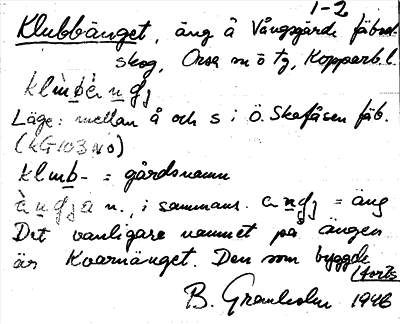 1-2
Klubbänget, äng å Vångsgärde fäbod-
skog, Orsa sn ö tg, Kopparb. l.
Läge: mellan å och s i Ö. Skafåsen fäb.
(KG 103 NO)
klumb- = gårdsnamn
n., i sammans. = äng
Det vanligare namnet på ängen
är Kvarnänget. Den som byggde
(forts
B. Granholm 1946